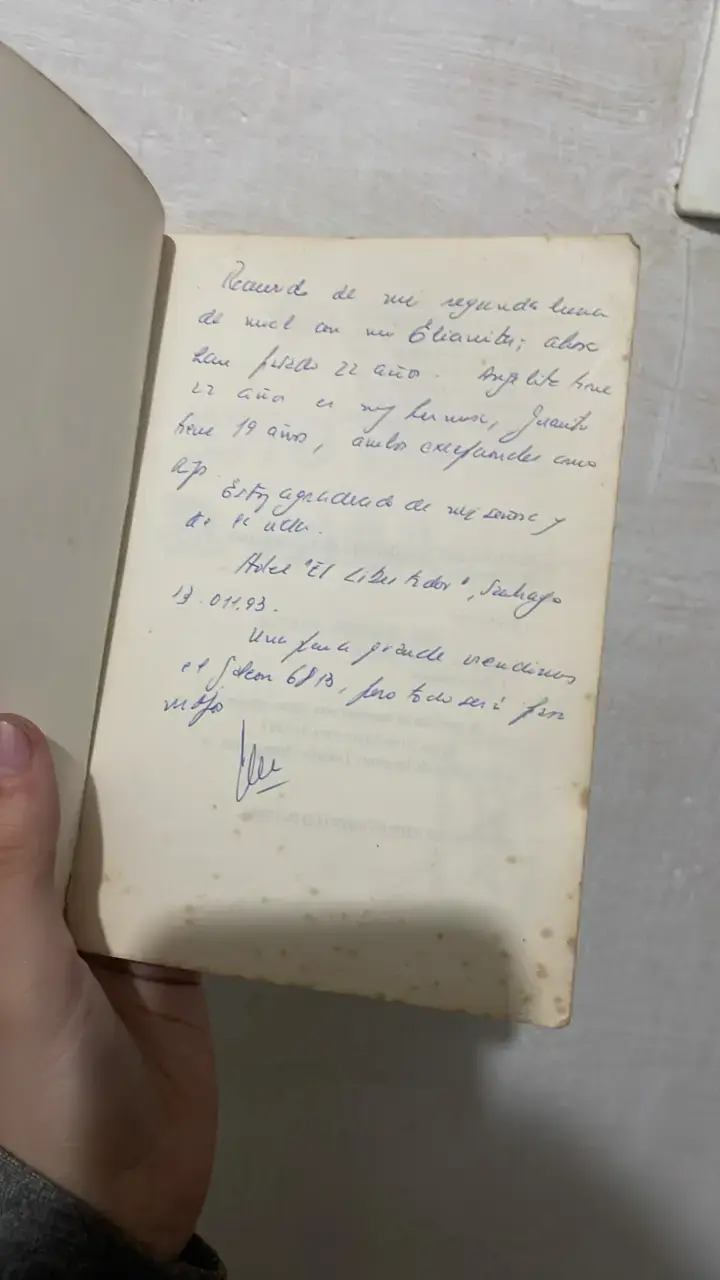 Recuerdo de mi segunda luna
de miel con mi Elianita; ahora
han pasado 22 años. Angelita tiene
22 años es muy hermosa, Juanito
tiene 19 años, ambos como
Estoy agradecido de mi señora y
de
Hotel "El Libertador", Santiago
13.011.93.
Una pena grande vendimos
el 6813, pero todo será por
mejor